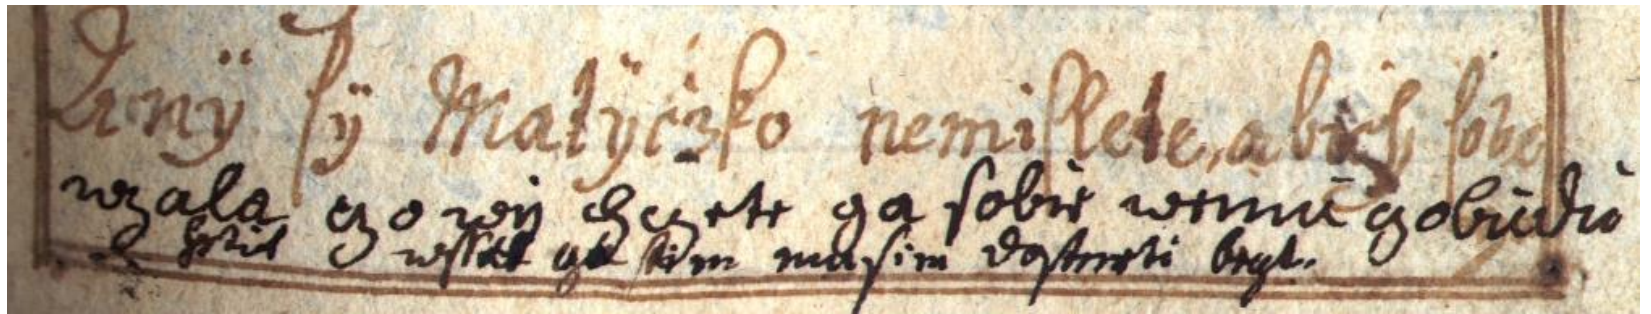 sÿ Matÿczko nemislete, abich sobe
wzala czo wÿ chczete ga sobie wemu czo budu
chtit wssak ga sam musim bÿt.